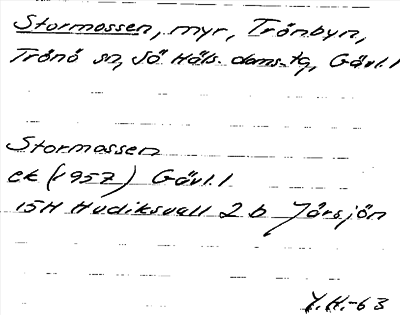 Stormossen, myr, Trönbyn,
Trönö sn, Sö Häls. doms.tg, Gävl. l
Stormossen
ek (1957) Gävl. l
15H Hudiksvall 2 b Järsjön
Y.H.-63